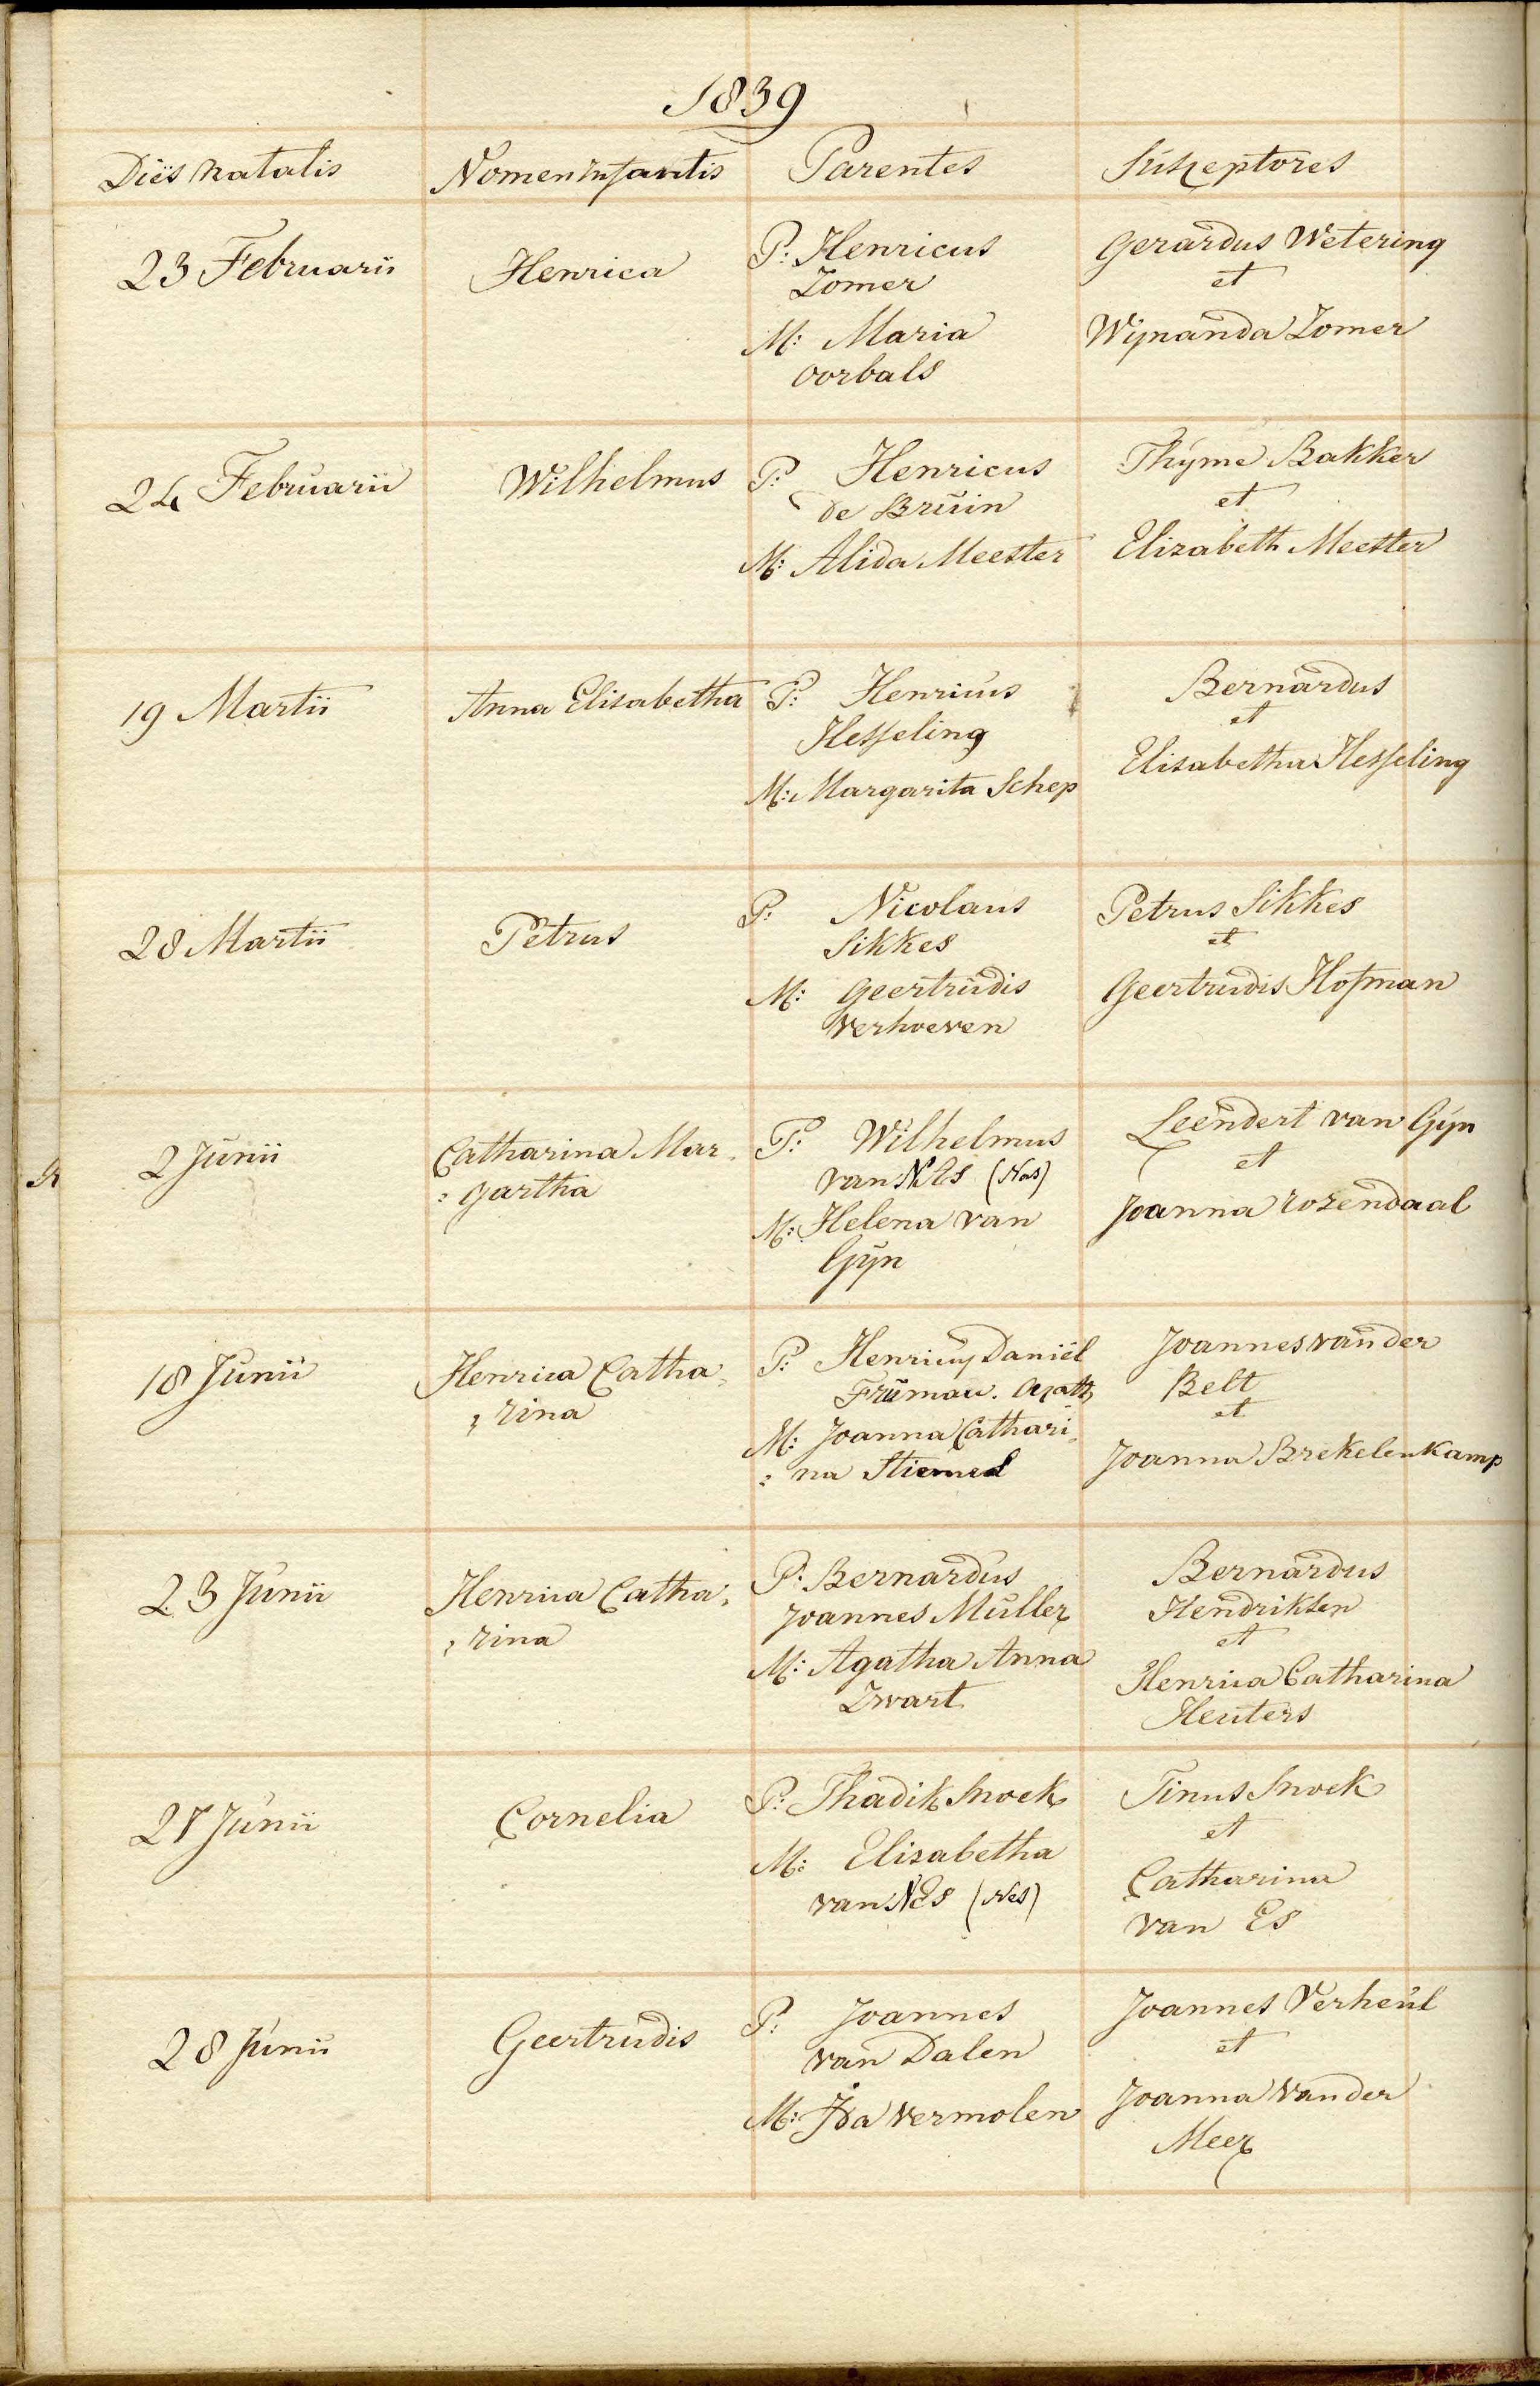 1839
Diës Natalis Nomen Infantis Parentes Suszeptores
23 Februarii Henrica P: Henricus Gerardus Wetering
Zomer et
M: Maria Wijnanda Zomer
Oorbals
24 Februarii Wilhelmus P: Henricus Thÿme Bakker
de Bruin et
M: Alida Meester Elizabeth Meester
19 Martii Anna Elisabetha P: Henricus Bernardus
Hesseling et
M: Margarita Schep Elisabetha Hesseling
28 Martii Petrus P: Nicolaus Petrus Sikkes
Sikkes et
M: Geertrudis Geertrudis Hofman
Verhoeven
2 Junii Catharina Mar, P: Wilhelmus Leendert van Gÿn
: gartha van NEs (Nes) et
M: Helena van Joanna Rozendaal
Gÿn
18 Junii Henrica Catha, P: Henricus Daniël Joannes van der
, rina Frumau. Belt
M: Joanna Cathari, et
: na Stiemed Joanna Brekelenkamp
23 Junii Henrica Catha, P. Bernardus Bernardus
, rina Joannes Muller Hendriksen
M: Agatha Anna et
Zwart Henrica Catharina
Heuters
27 Junii Cornelia P: Thadik Snoek Tinus Snoek
M: Elisabetha et
van NEs (Nes) Catharina
van Es
28 Junii Geertrudis P: Joannes Joannes Verheul
van Dalen et
M: Ida Vermolen Joanna van der
Meer